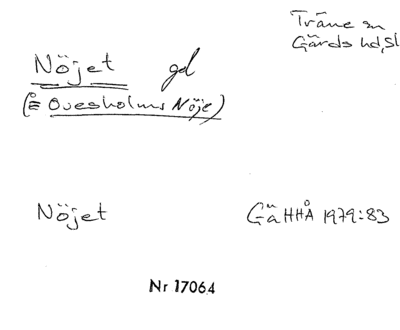 Träne sn
Gärds hd, Sk
Nöjet gd
(= Ovesholms Nöje)
Nöjet GäHHÅ 1979:83
Nr 17064